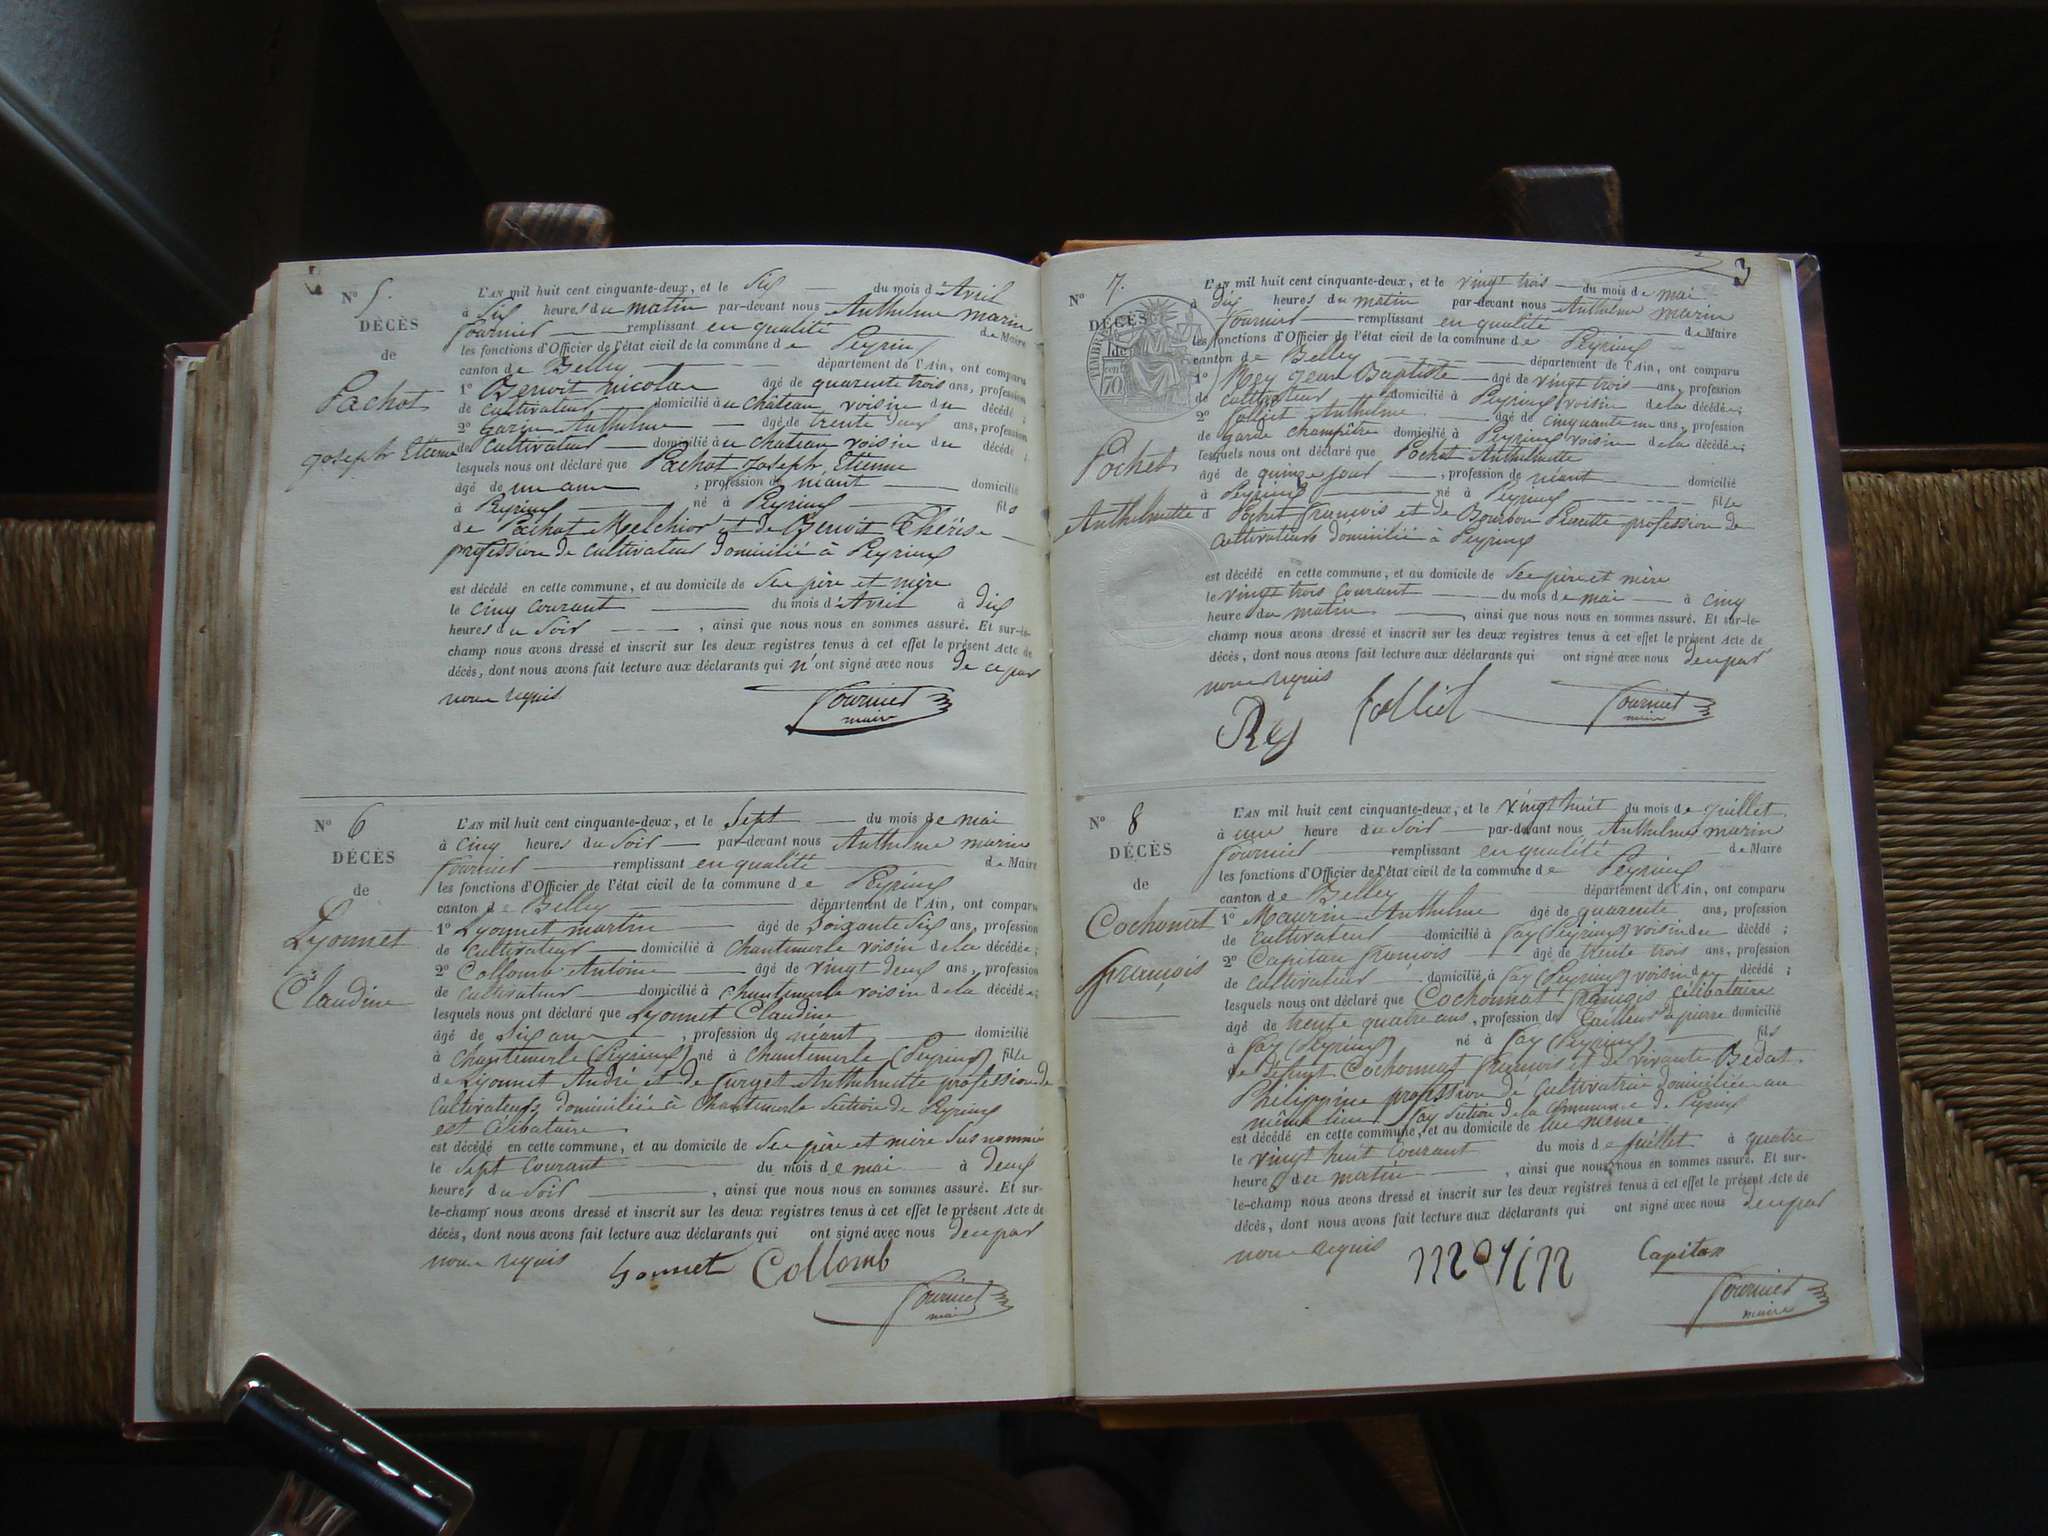 N° 5.
DÉCÈS
de
Pachot
Joseph Etienne
L'AN mil huit cent cinquante-deux, et le Six du mois d'Avril
à Six heures du matin par-devant nous Anthelme marin
Fournier remplissant en qualité de Maire
les fonctions d'Officier de l'état civil de la commune de Peyrieu
canton de Belley département de l'Ain, ont comparu
1° Benoit Nicolas âgé de quarente trois ans, profession
de cultivateur domicilié à au château voisin du décédé ;
2° Garin Anthelme âgé de trente deux ans, profession
de cultivateur domicilié à au chateau voisin du décédé ;
lesquels nous ont déclaré que Pachot Joseph Etienne
âgé de un ans , profession de néant domicilié
à Peyrieu né à Peyrieu fils
de Pachot Melchior et de Benoit Thérèse
profession de cultivateurs domicilié à Peyrieux
est décédé en cette commune, et au domicile de Ses père et mère
le cinq courant du mois d'Avril à dix
heures du Soir , ainsi que nous nous en sommes assuré. Et sur-le-
champ nous avons dressé et inscrit sur les deux registres tenus à cet effet le présent Acte de
décès, dont nous avons fait lecture aux déclarants qui n'ont signé avec nous de ce par
nous requis
Fournier
maire
N° 6
DÉCÈS
de
Lyonnet
Claudine
L'AN mil huit cent cinquante-deux, et le Sept du mois de mai
à cinq heures du Soir par-devant nous Anthelme marin
Fournier remplissant en qualité de Maire
les fonctions d'Officier de l'état civil de la commune de Peyrieux
canton de Belley département de l'Ain, ont comparu
1° Lyonnet martin âgé de Soixante Six ans, profession
de cultivateur domicilié à Chantemerle voisin de la décédée ;
2° Collomb Antoine âgé de vingt deux ans, profession
de cultivateur domicilié à Chantemerle voisin de la décédée ;
lesquels nous ont déclaré que Lyonnet Claudine
âgé de Six ans , profession de néant domicilié
à Chantemerle (Peyrieux) né à Chantemerle (Peyrieux) fille
de Lyonnet André et de Furget Anthelmette profession de
cultivateurs domiciliés à Chantemerle Section de Peyrieux
est célibataire
est décédé en cette commune, et au domicile de Ses père et mère Sus nommé
le Sept Courant du mois de mai à deux
heures du Soir , ainsi que nous nous en sommes assuré. Et sur-
le-champ nous avons dressé et inscrit sur les deux registres tenus à cet effet le présent Acte de
décès, dont nous avons fait lecture aux déclarants qui ont signé avec nous de ce par
nous requis
Collomb
Fournier
3
N° 7.
DÉCÈS
TIMBRE
70
Pochet
Anthelmette
L'AN mil huit cent cinquante-deux, et le vingt trois du mois de mai
à dix heures du matin par-devant nous Anthelme marin
Fournier remplissant en qualité de Maire
les fonctions d'Officier de l'état civil de la commune de Peyrieux
canton de Belley département de l'Ain, ont comparu
1° Rey Jean Baptiste âgé de vingt trois ans, profession
de cultivateur domicilié à Peyrieux voisin de la décédée ;
2° Folliet Anthelme âgé de cinquante un ans, profession
de garde champêtre domicilié à Peyrieux voisin de la décédée ;
lesquels nous ont déclaré que Pochet Anthelmette
âgé de quinze jour , profession de néant domicilié
à Peyrieux né à Peyrieux fille
d Pochet François et de Bourbon Pierrette profession de
cultivateurs domicilié à Peyrieux
est décédé en cette commune, et au domicile de Ses père et mère
le vingt trois courant du mois de mai à cinq
heure du matin , ainsi que nous nous en sommes assuré. Et sur-le-
champ nous avons dressé et inscrit sur les deux registres tenus à cet effet le présent Acte de
décès, dont nous avons fait lecture aux déclarants qui ont signé avec nous de ce par
nous requis
Rey Folliet Fournier
maire
N° 8
DÉCÈS
de
Cochonat
François
L'AN mil huit cent cinquante-deux, et le vingt huit du mois de Juillet
à une heure du Soir par-devant nous Anthelme marin
Fournier remplissant en qualité de Maire
les fonctions d'Officier de l'état civil de la commune de Peyrieux
canton de Belley département de l'Ain, ont comparu
1° Maurin Anthelme âgé de quarente ans, profession
de cultivateur domicilié à Fay (Peyrieux) voisin du décédé ;
2° Capitan François âgé de trente trois ans, profession
de cultivateur domicilié à Fay (Peyrieux) voisin du décédé ;
lesquels nous ont déclaré que Cochonnat François Célibataire
âgé de trente quatre ans , profession de tailleur de pierre domicilié
à Fay (Peyrieux) né à Fay (Peyrieux) fils
de défunt Cochonnat François et de vivante Bedat
Philippine profession de Cultivatrice domiciliée au
même lieu Fay Section de la commune de Peyrieux
est décédé en cette commune, et au domicile de lui même
le vingt huit courant du mois de Juillet à quatre
heure du matin , ainsi que nous nous en sommes assuré. Et sur-
le-champ nous avons dressé et inscrit sur les deux registres tenus à cet effet le présent Acte de
décès, dont nous avons fait lecture aux déclarants qui ont signé avec nous de ce par
nous requis
Capitan
Fournier
maire